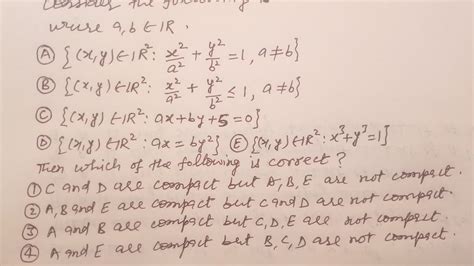 Consider the following
where a, b ∈ IR.
Ⓐ {(x,y) ∈ IR²: x²/a² + y²/b² = 1, a ≠ b}
Ⓑ {(x,y) ∈ IR²: x²/a² + y²/b² ≤ 1, a ≠ b}
Ⓒ {(x,y) ∈ IR²: ax + by + 5 = 0}
Ⓓ {(x,y) ∈ IR²: ax = by²} Ⓔ {(x,y) ∈ IR²: x³ + y³ = 1}
Then which of the following is correct?
① C and D are compact but A, B, E are not compact.
② A, B and E are compact but C and D are not compact.
③ A and B are compact but C, D, E are not compact.
④ A and E are compact but B, C, D are not compact.